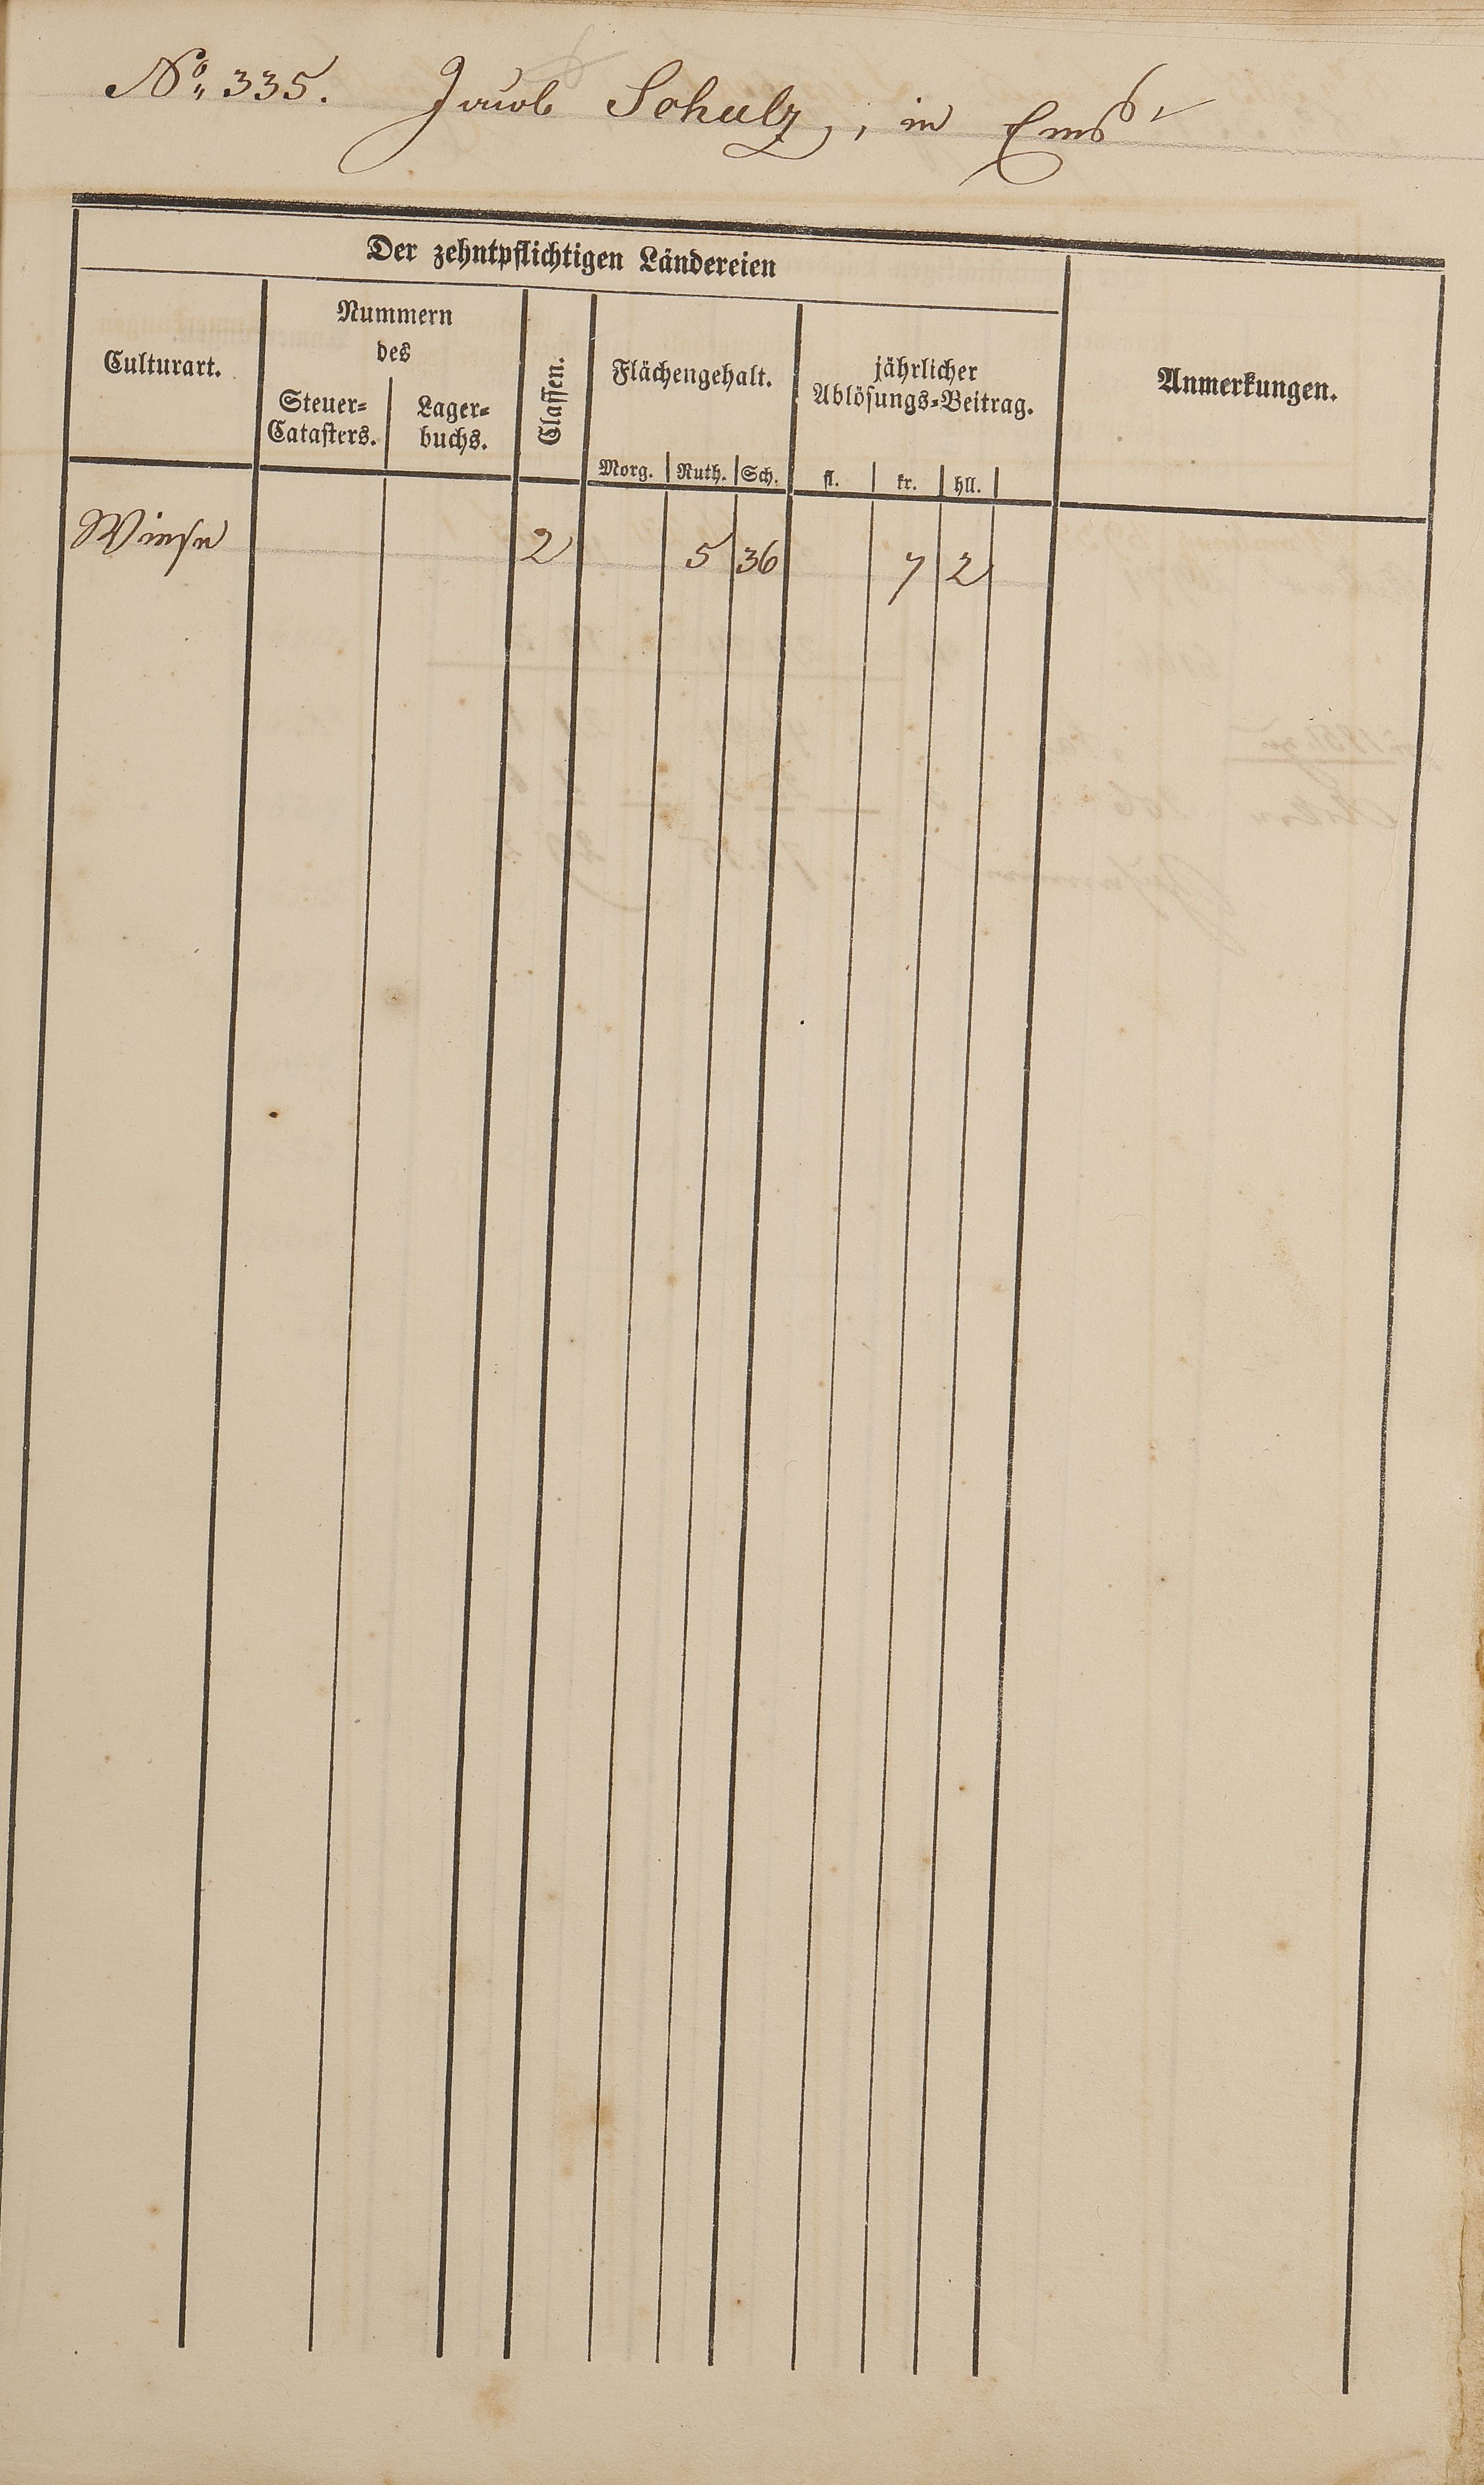 No. 335. Jacob Schulz, in Ems
Der zehntpflichtigen Ländereien
Culturart.
Nummern
des
Steuer=
Catasters.
Lager=
buchs.
Classen.
Flächengehalt.
Morg. Ruth. Sch.
jährlicher
Ablösungs=Beitrag.
fl. kr. hll.
Anmerkungen.
Wiese 2 5 36 7 2